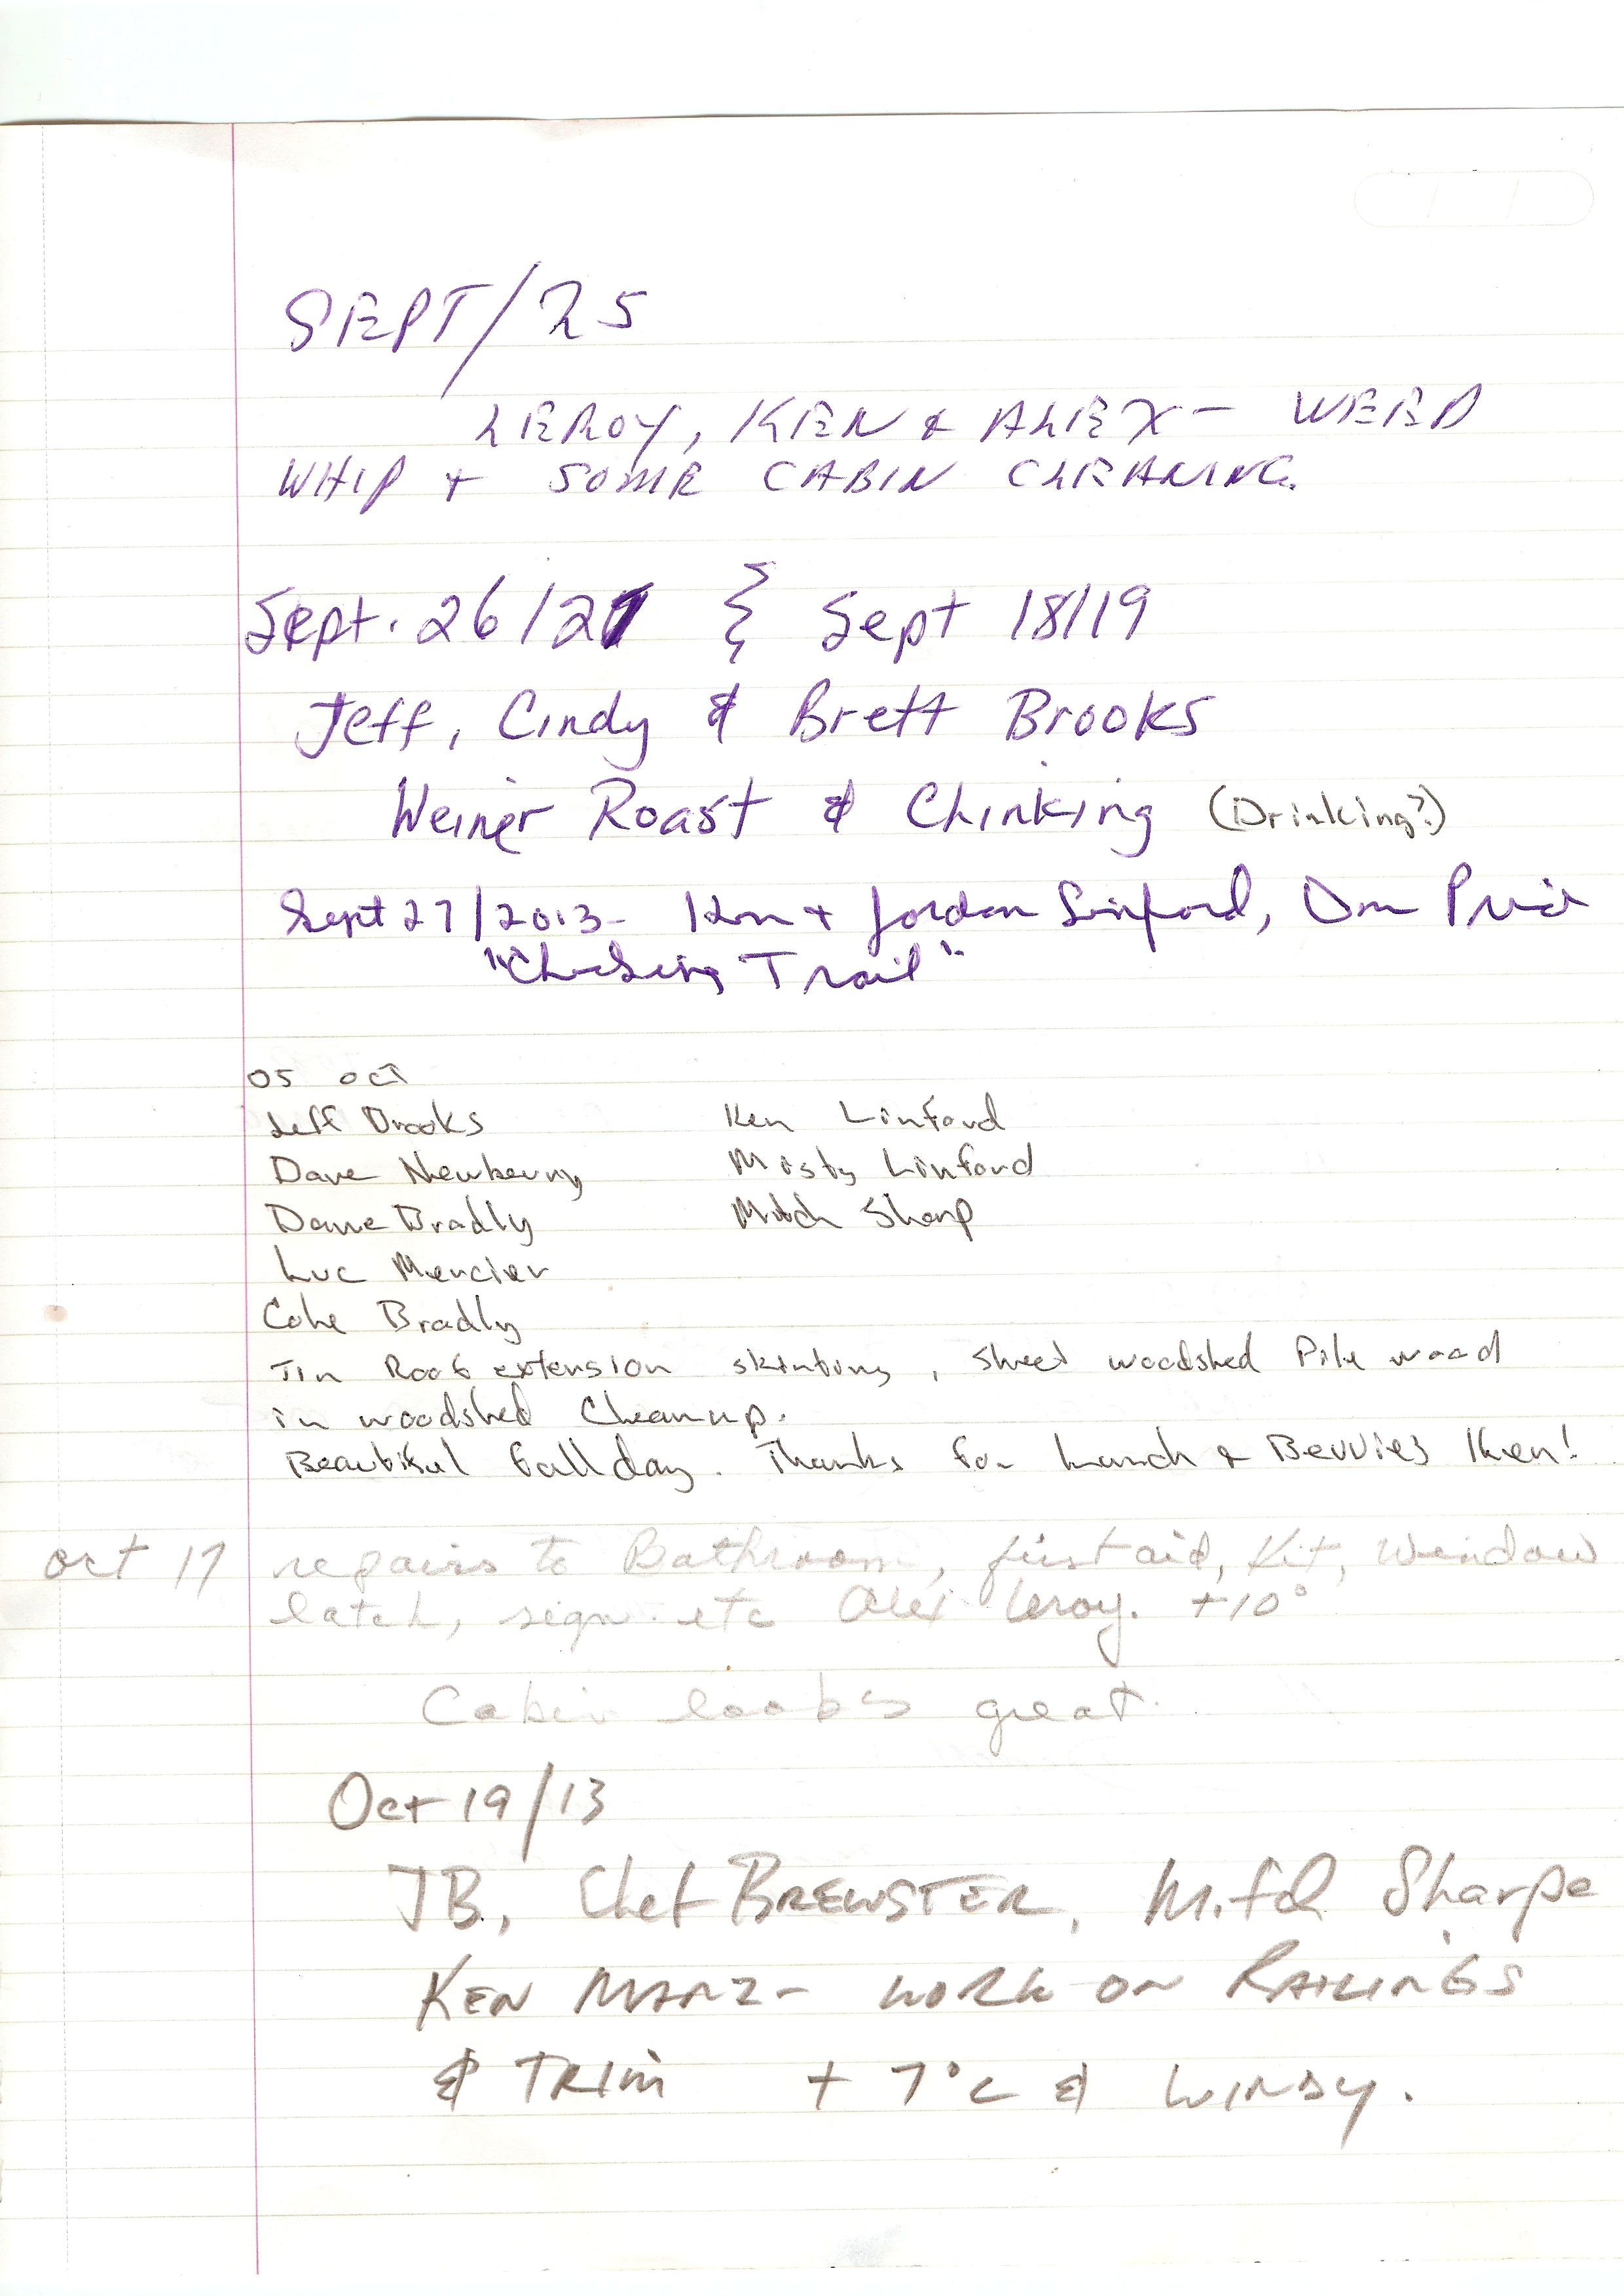 SEPT/25
LEROY, KEN & ALEX - WEED
WHIP + SOME CABIN CLEANING.
Sept. 26/27 } Sept 18/19
Jeff, Cindy & Brett Brooks
Weiner Roast & Chinking (Drinking?)
Sept 27/2013 - Ken + Jordan Linford, Don Price
"Checking Trail"
05 Oct
Jeff Brooks Ken Linford
Dave Newberry Misty Linford
Dave Bradly Mitch Sharp
Luc Mercier
Cole Bradly
Tin Roof extension skinting, Sheet woodshed Pile wood
in woodshed Cleanup.
Beautiful fall day. Thanks for Lunch & Bevvies Ken!
Oct 17 repairs to Bathroom, first aid, Kit, Window
latch, sign etc Alex Leroy. +10°
Cabin looks great.
Oct 19/13
JB, Chef BREWSTER, Mitch Sharpe
KEN MARZ - WORK ON RAILINGS
& TRIM + 7°C & WINDY.